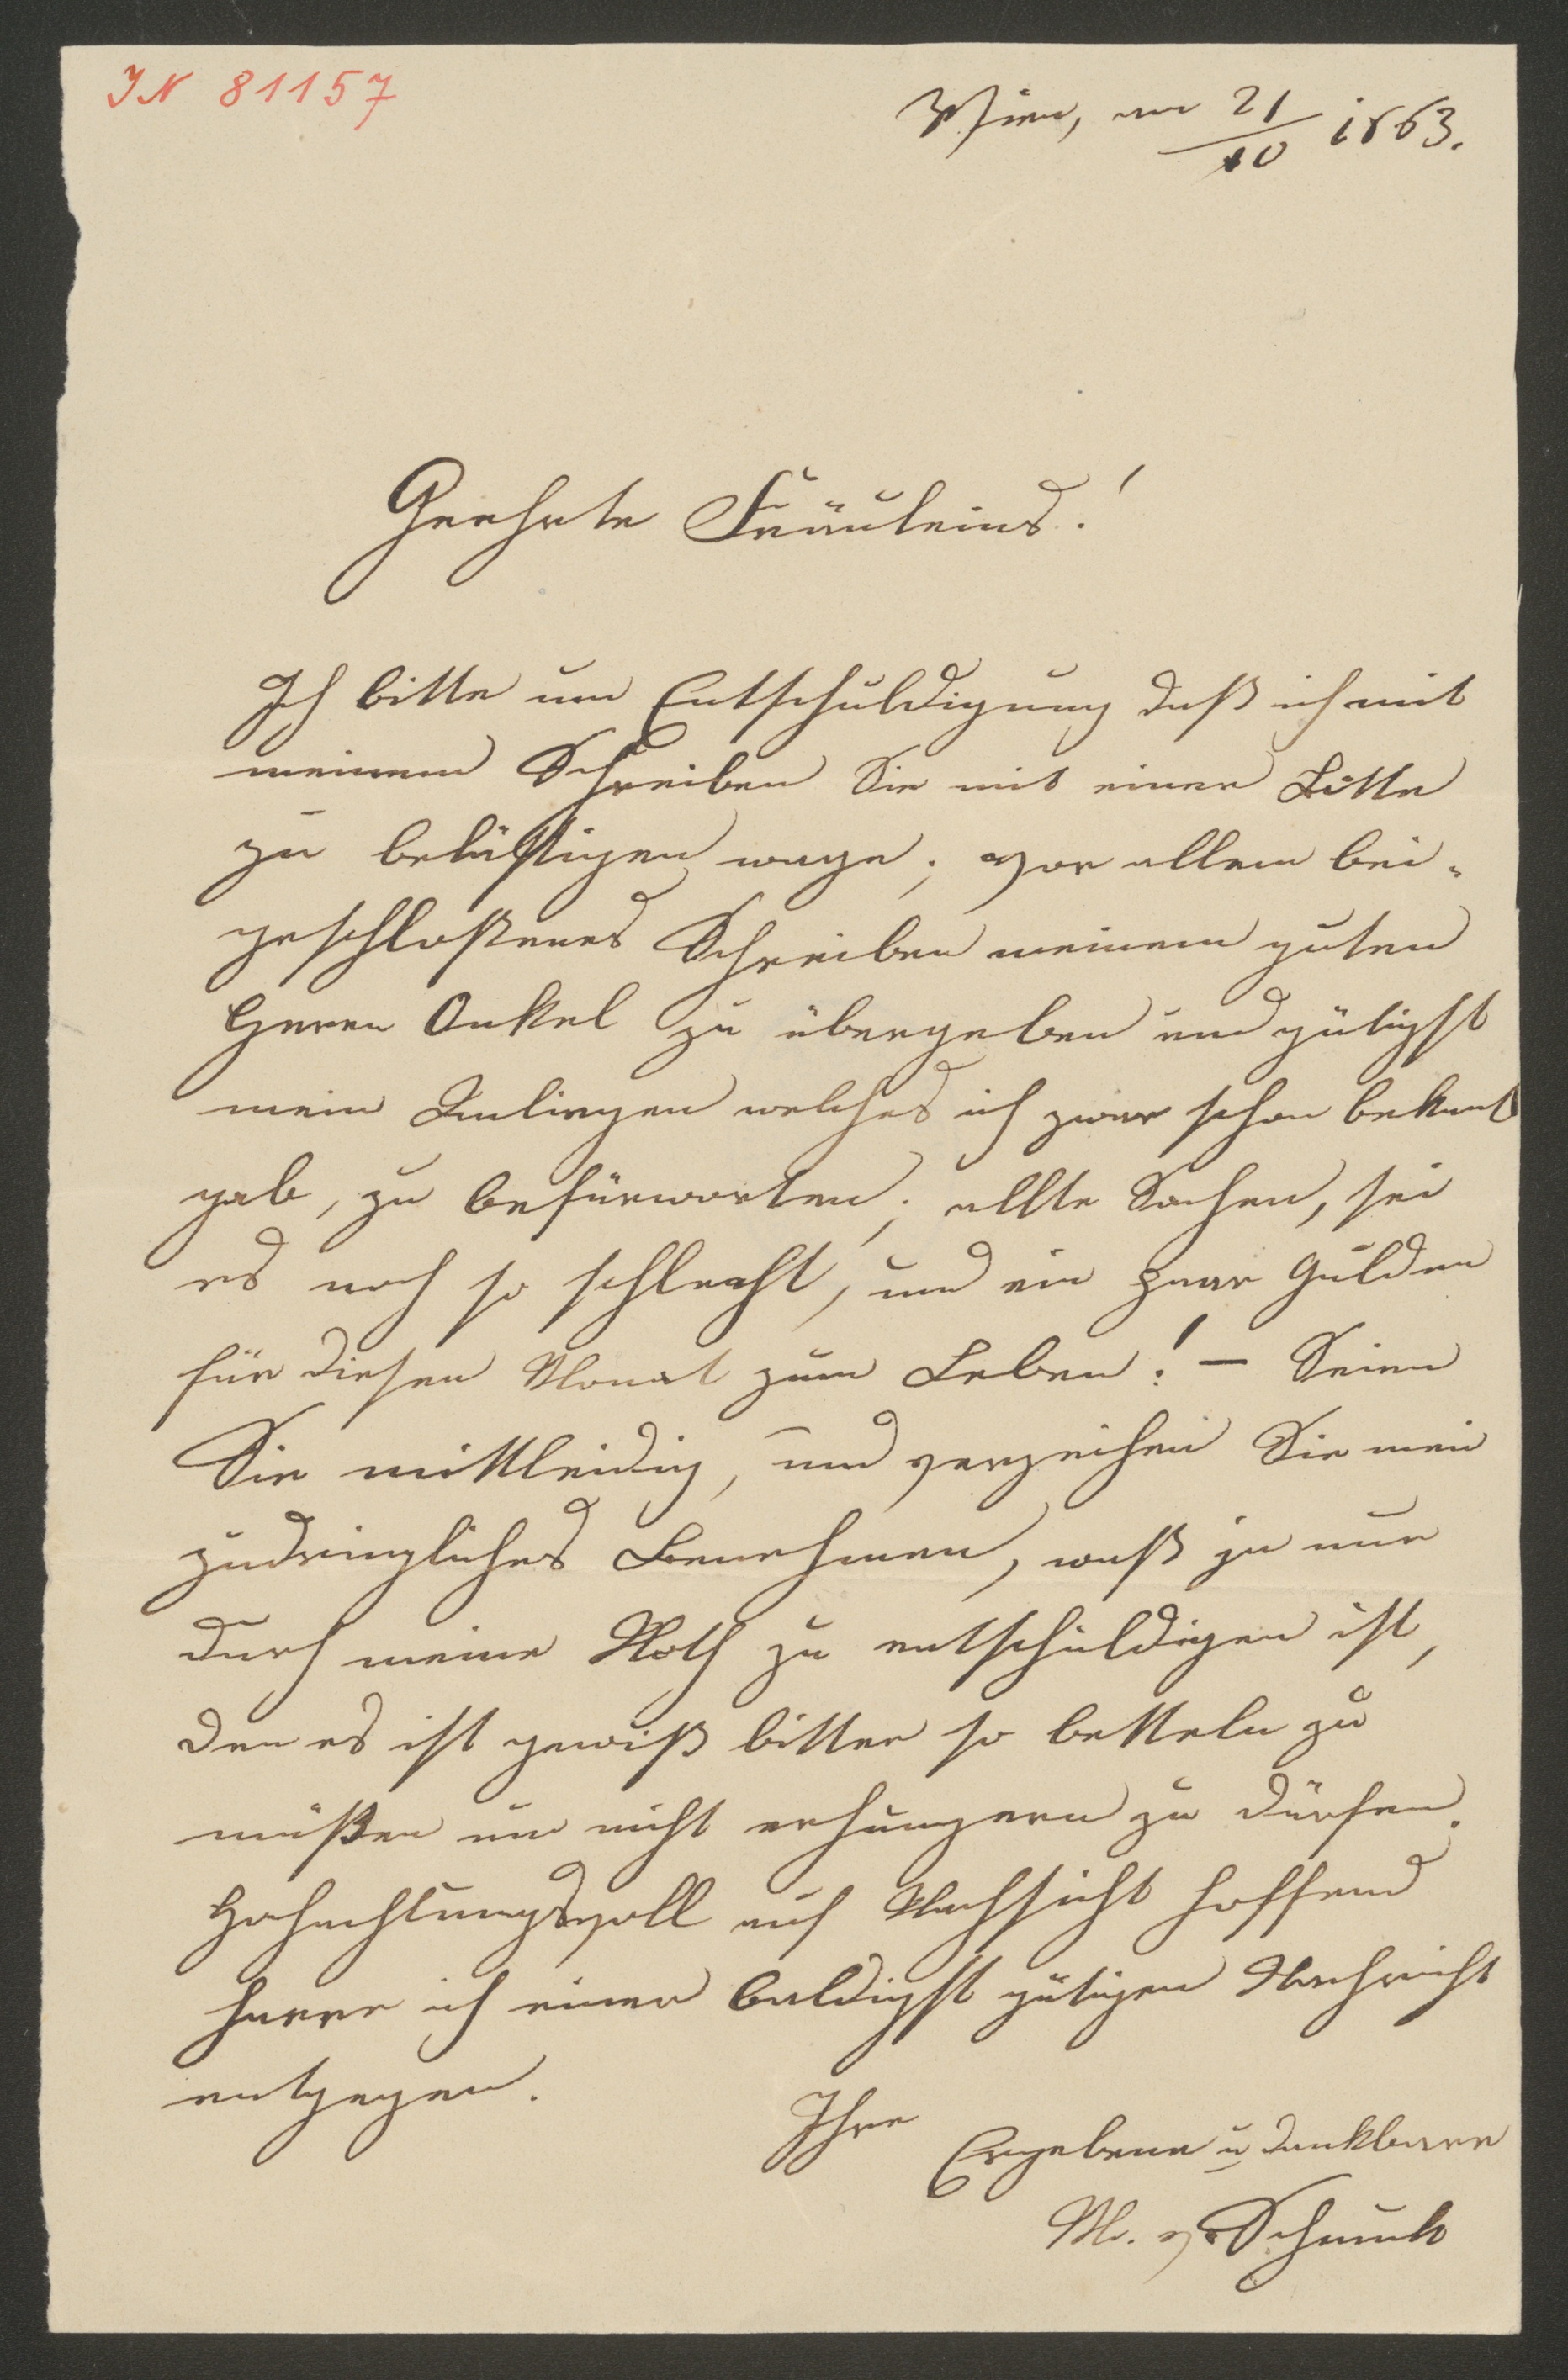 IN 81157
Wien, am 21/10 1863.
Geehrte Fräuleins!
Ich bitte um Entschuldigung daß ich mit
meinem Schreiben Sie mit einer Bitte
zu belästigen wage; vor allem bei-
geschloßenes Schreiben meinem guten
Herrn Onkel zu übergeben und gütigst
mein Anliegen welches ich zwar schon bekant
gab, zu befürworten; allte Sachen, sei
es noch so schlecht, und ein paar Gulden
für diesen Monat zum Leben! — Seien
Sie mittleidig, und verzeihen Sie mein
zudringliches Benehmen, waß ja nur
durch meine Noth zu entschuldigen ist,
den es ist gewiß bitter so betteln zu
müßen um nicht erhungern zu dürfen.
Hochachtungsvoll auf Nachsicht hoffend
harre ich einer baldigst gütigen Nachricht
entgegen.
Ihre
Ergebene u dankbare
M. v.